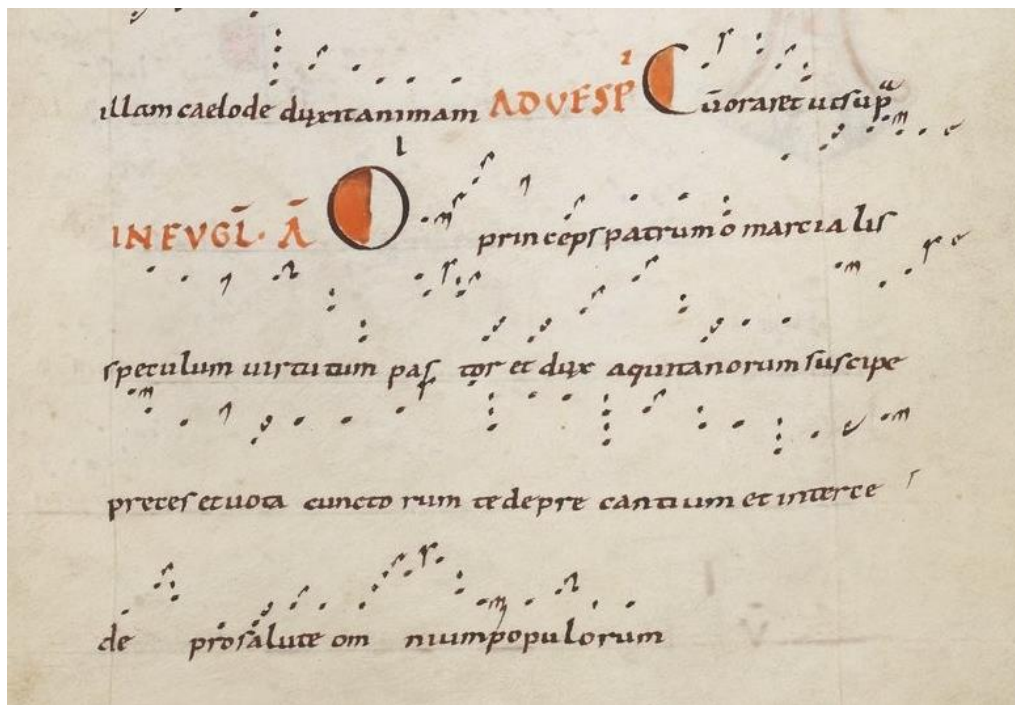 illam caelo de duxit animam AD VESP̄ C ūoraret ut sup̄a
IN EVGL̄· Ā O princeps patrum o martialis
speculum uirtutum pastor et dux aquitanorum suscipe
preces et uota cunctorum te deprecantium et interce
de pro salute omnium populorum